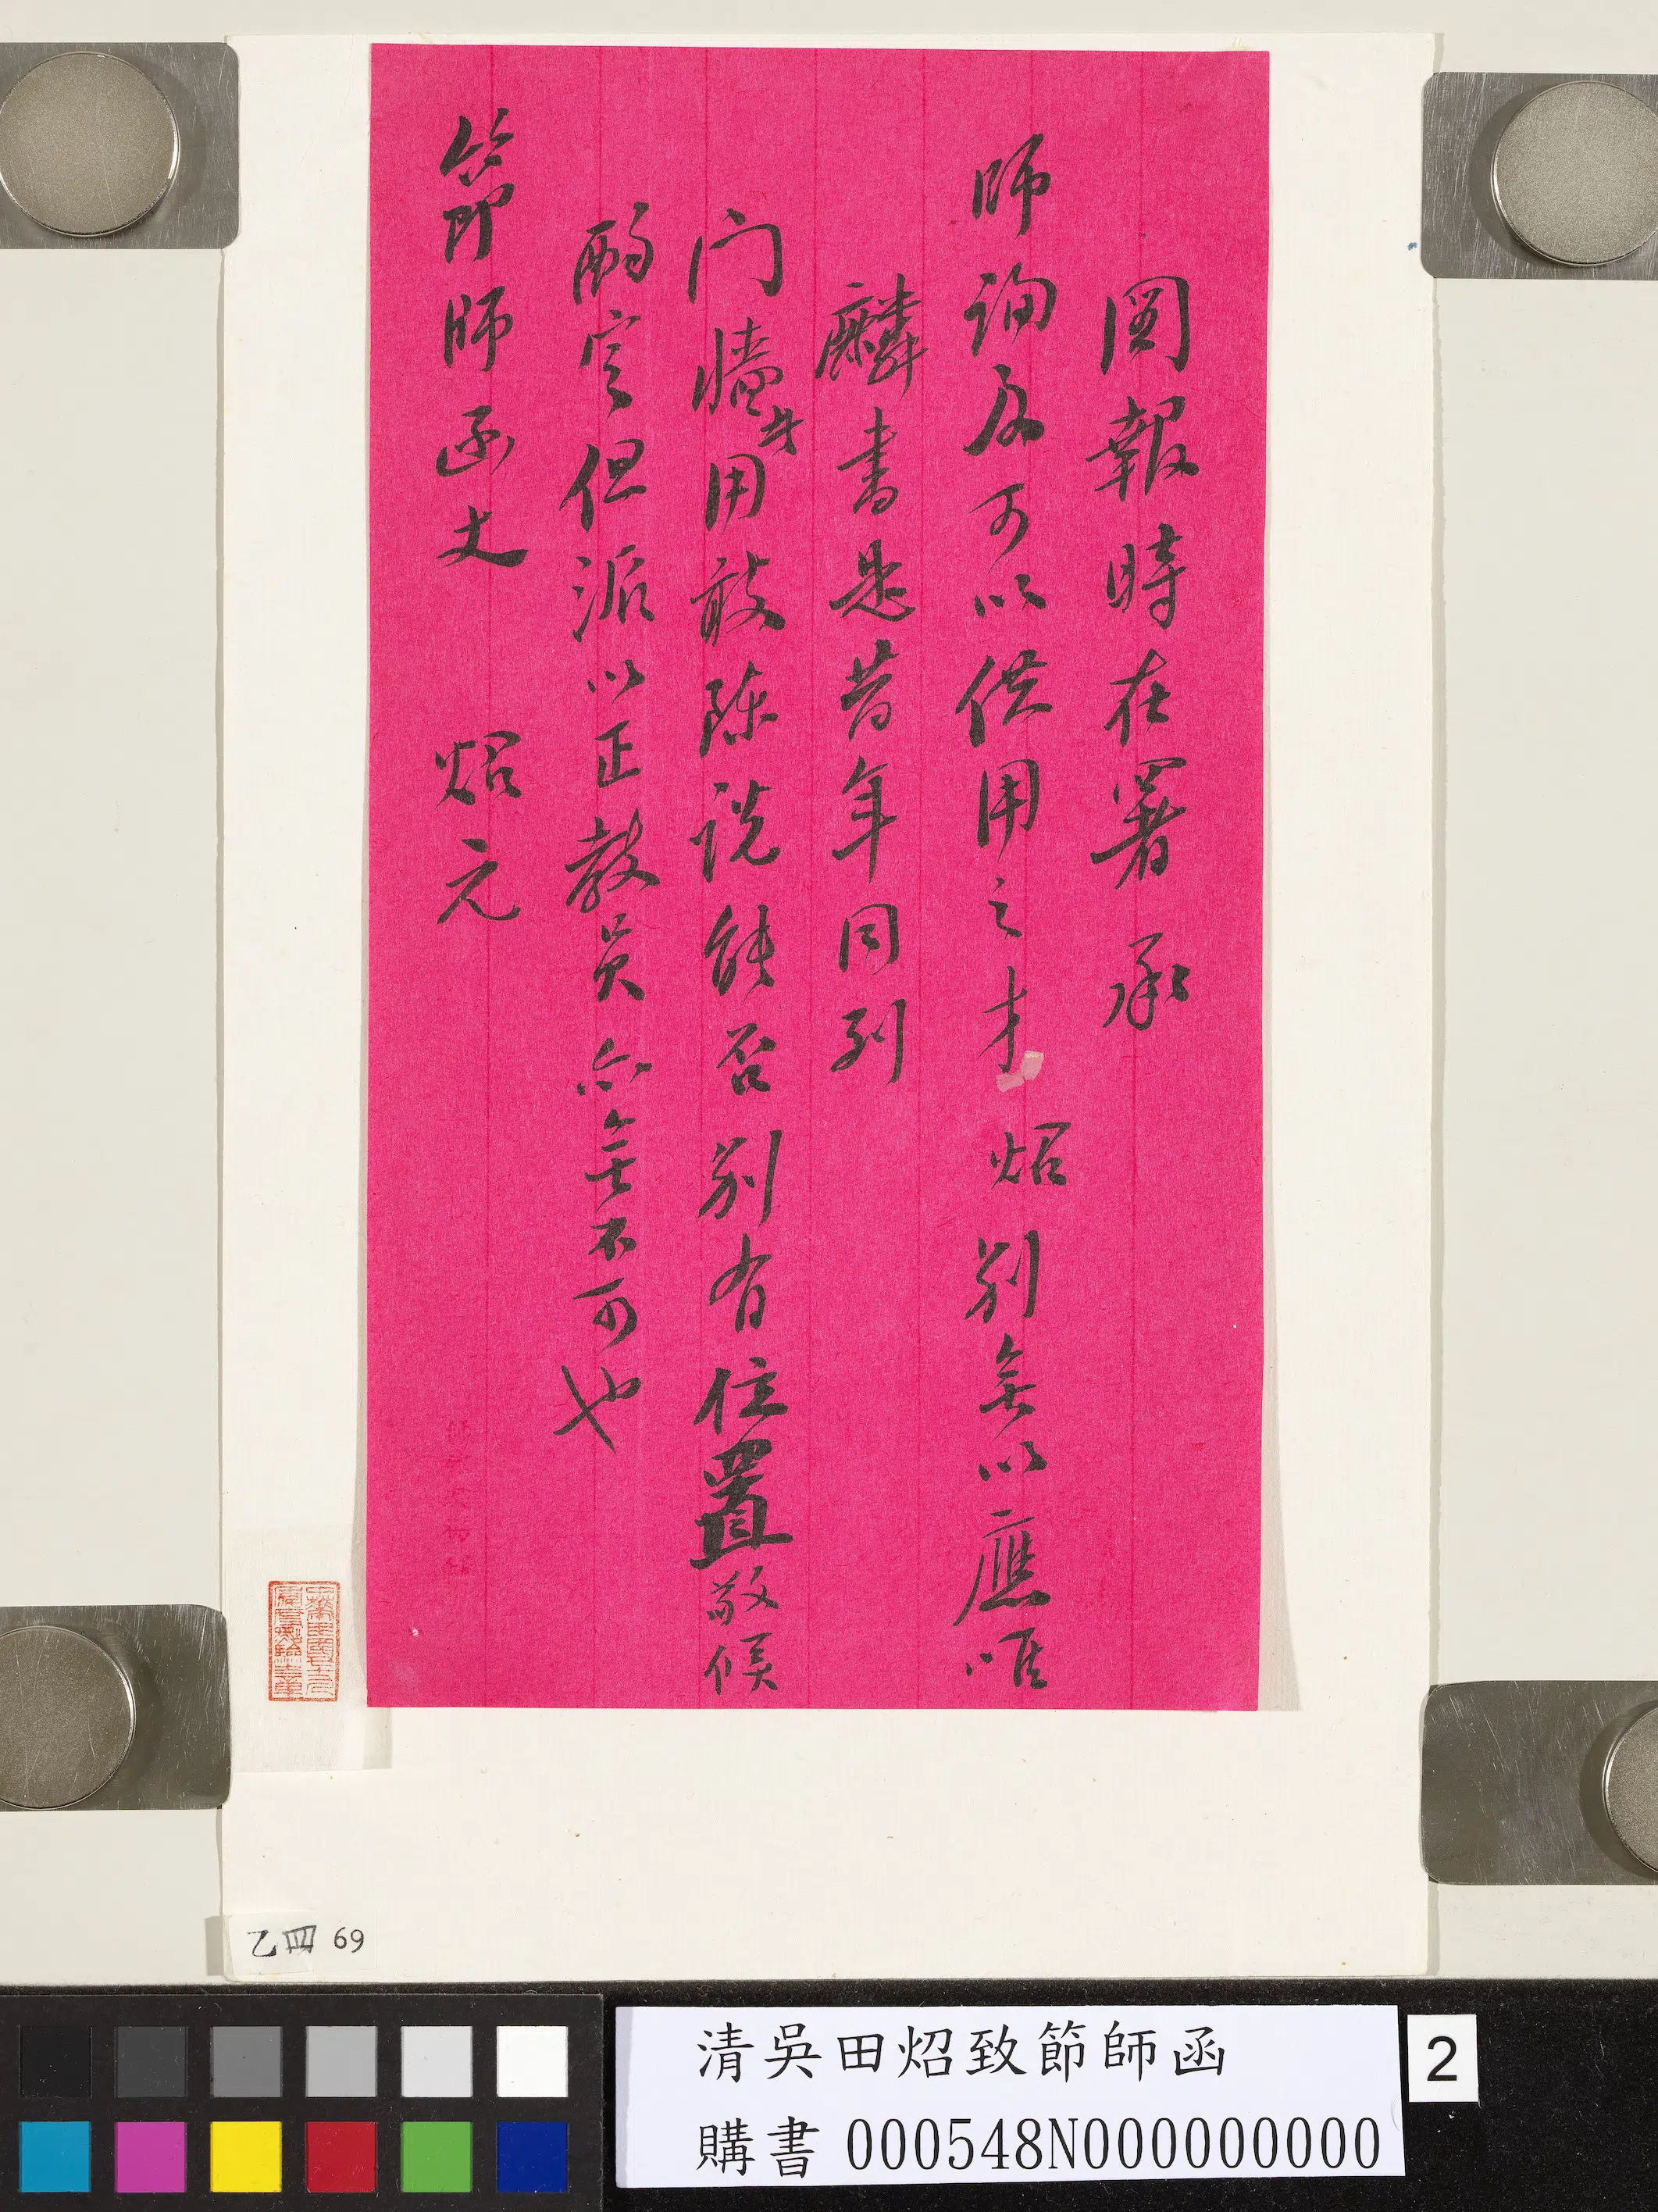 圖報時在署承
師詢及可以供用之才炤別無以應唯
麟書思昔年同列
門牆
用敢陳說能否別有位置敬候
酌定但派以正教員亦無不可也
節師函丈 炤元
乙四 69
清吳田炤致節師函
購書 000548N000000000
2